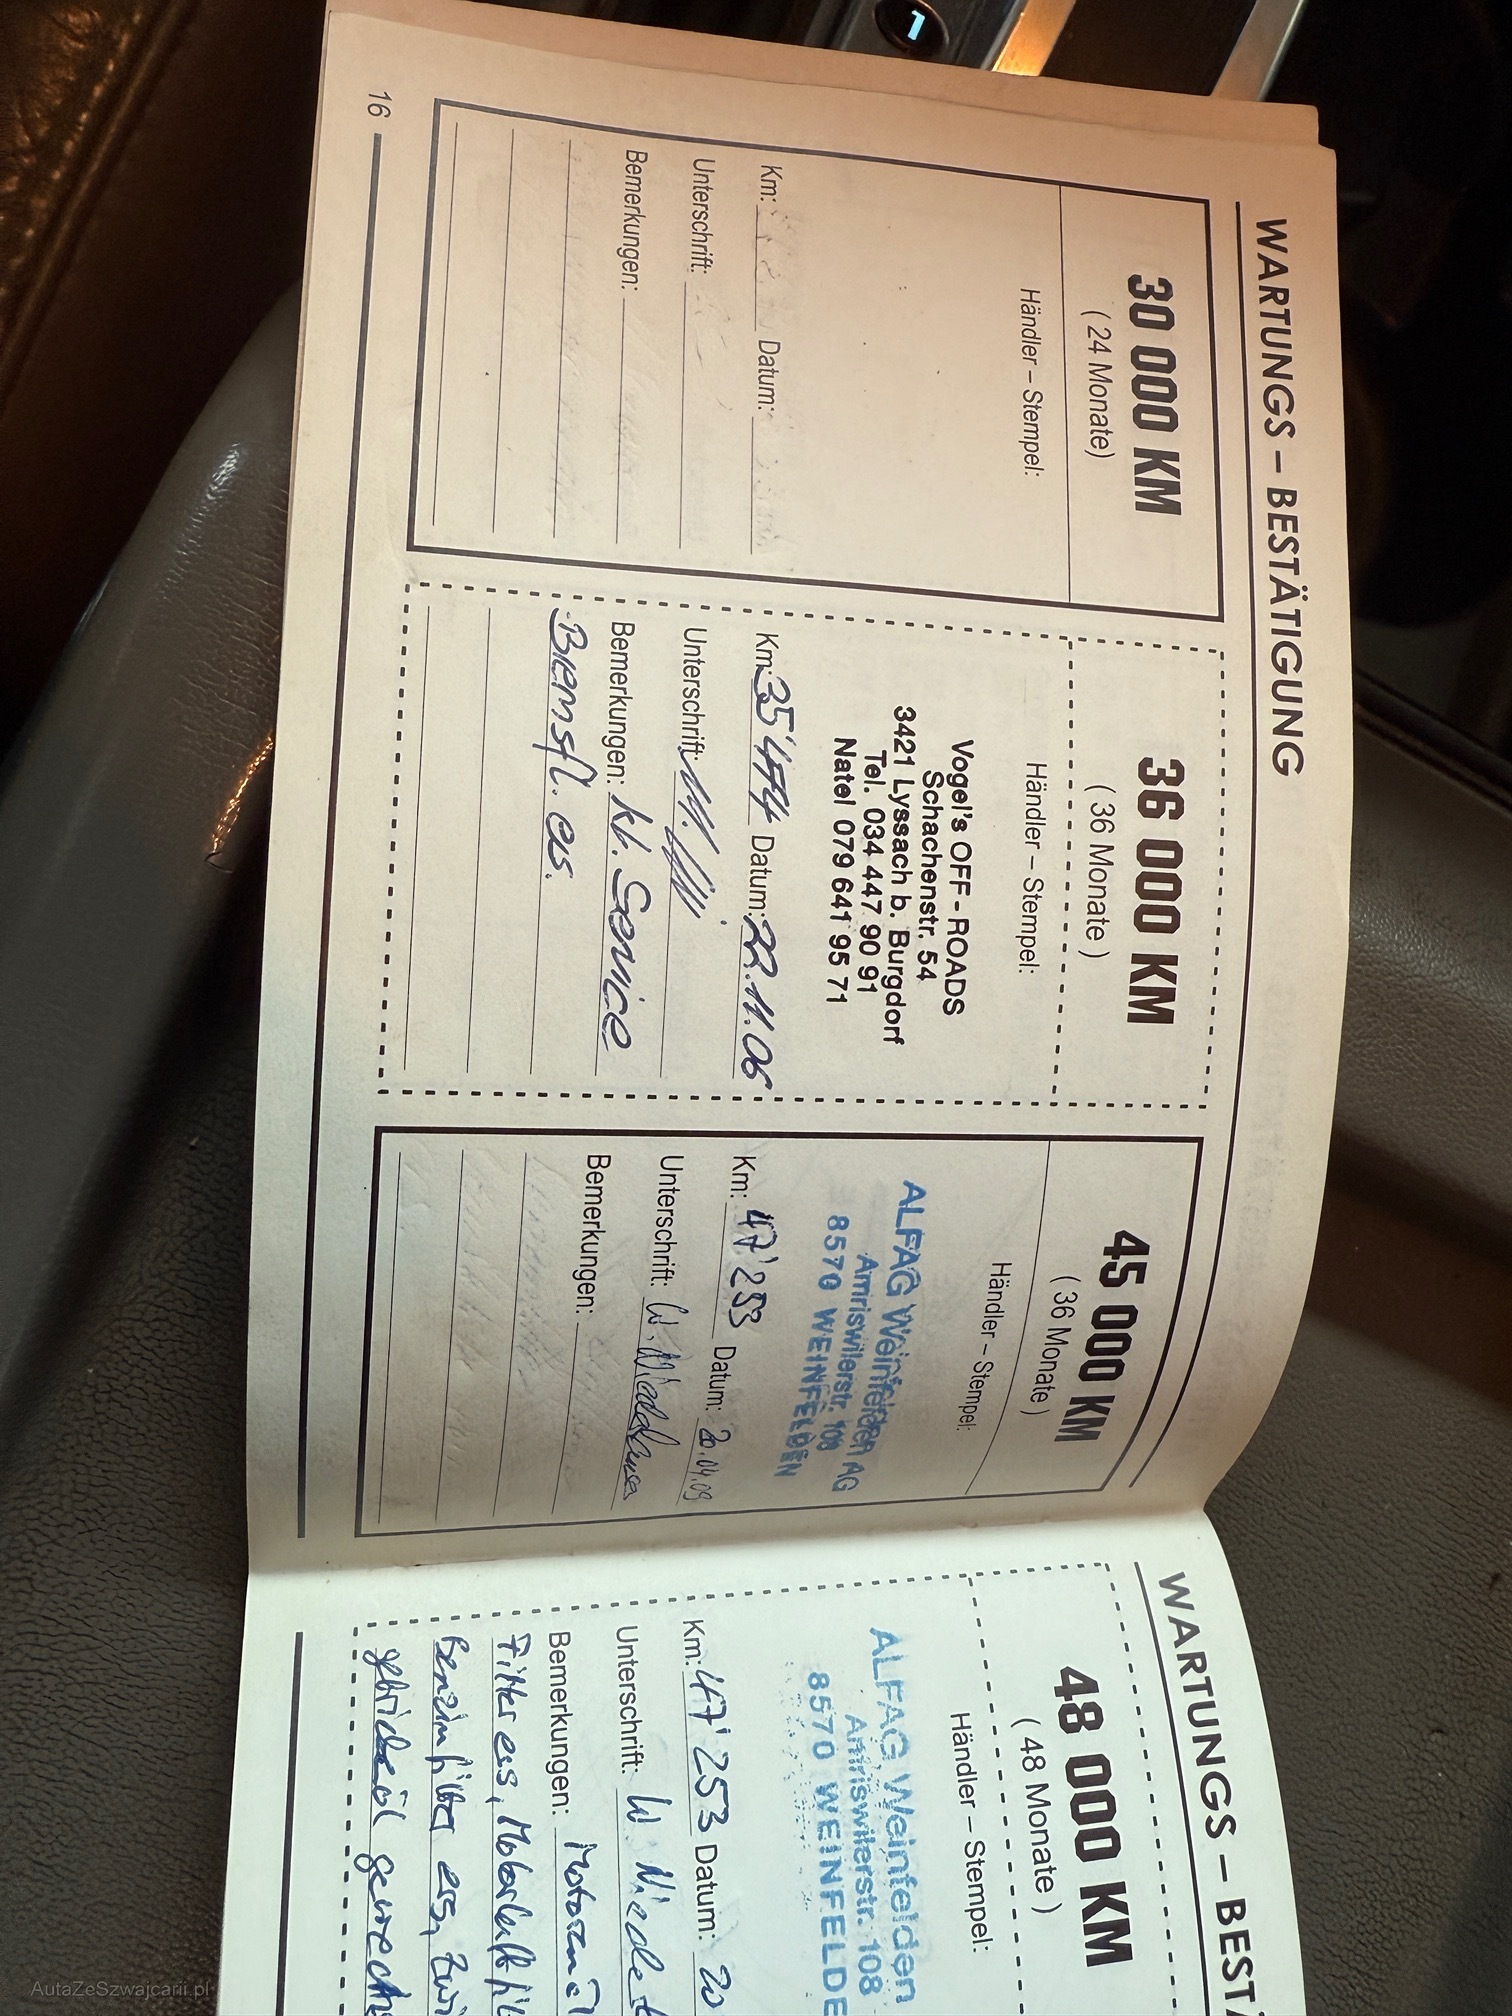 1
WARTUNGS – BESTÄTIGUNG
30 000 KM
( 24 Monate)
Händler – Stempel:
Km: Datum:
Unterschrift:
Bemerkungen:
36 000 KM
( 36 Monate )
Händler – Stempel:
Vogel's OFF - ROADS
Schachenstr. 54
3421 Lyssach b. Burgdorf
Tel. 034 447 90 91
Natel 079 641 95 71
Km: 35'474 Datum: 22.11.06
Unterschrift:
Bemerkungen: kl. Service
Bremsfl. ers.
45 000 KM
( 36 Monate )
Händler – Stempel:
ALFAG Weinfelden AG
Amriswilerstr. 108
8570 WEINFELDEN
Km: 47'253 Datum: 20.04.09
Unterschrift: W.
Bemerkungen:
16
WARTUNGS – BEST
48 000 KM
( 48 Monate )
Händler – Stempel:
ALFAG Weinfelden
Amriswilerstr. 108
8570 WEINFELDE
Km: 47'253 Datum: 20
Unterschrift: W.
Bemerkungen:
Filter ers, Motorluftfil
Benzinfilter ers,
AutaZeSzwajcarii.pl